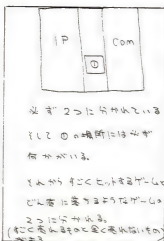 1P
com
①
必ず2つに分かれている
そして①の場所には必ず
何かがいる。
それからすごくヒットするゲームと
どん底に落ちるようなゲームの
2つに分かれる。
(すごく売れるものと全く売れないもの)